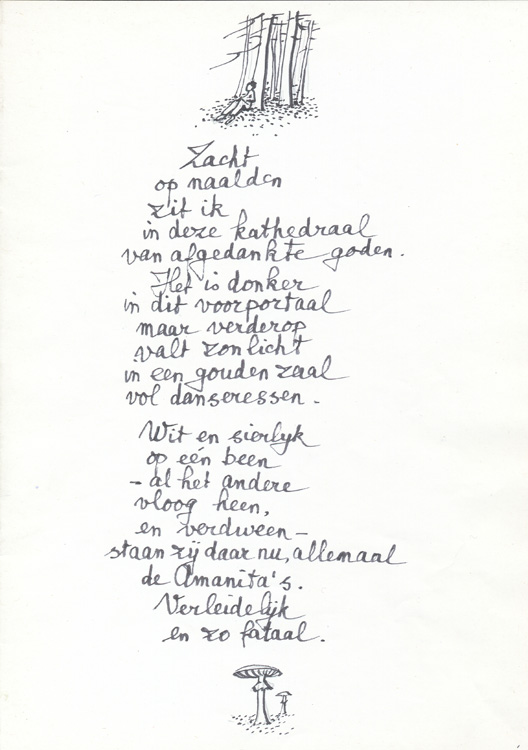 Zacht
op naalden
zit ik
in deze kathedraal
van afgedankte goden.
Het is donker
in dit voorportaal
maar verderop
valt zonlicht
in een gouden zaal
vol danseressen.
Wit en sierlyk
op eén been
- al het andere
vloog heen,
en verdween -
staan zij daar nu, allemaal
de Amanita's.
Verleidelijk
en zo fataal.